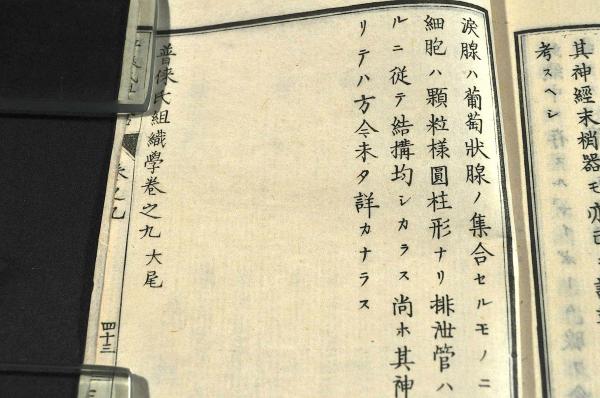 其神經末梢器モ亦
考スヘシ
淚腺ハ葡萄狀腺ノ集合セルモノニ
細胞ハ顆粒樣圓柱形ナリ排泄管ハ
ルニ從テ結搆均シカラス尚ホ其神
リテハ方今未タ詳カナラス
普倈氏組織學卷之九大尾
四十三